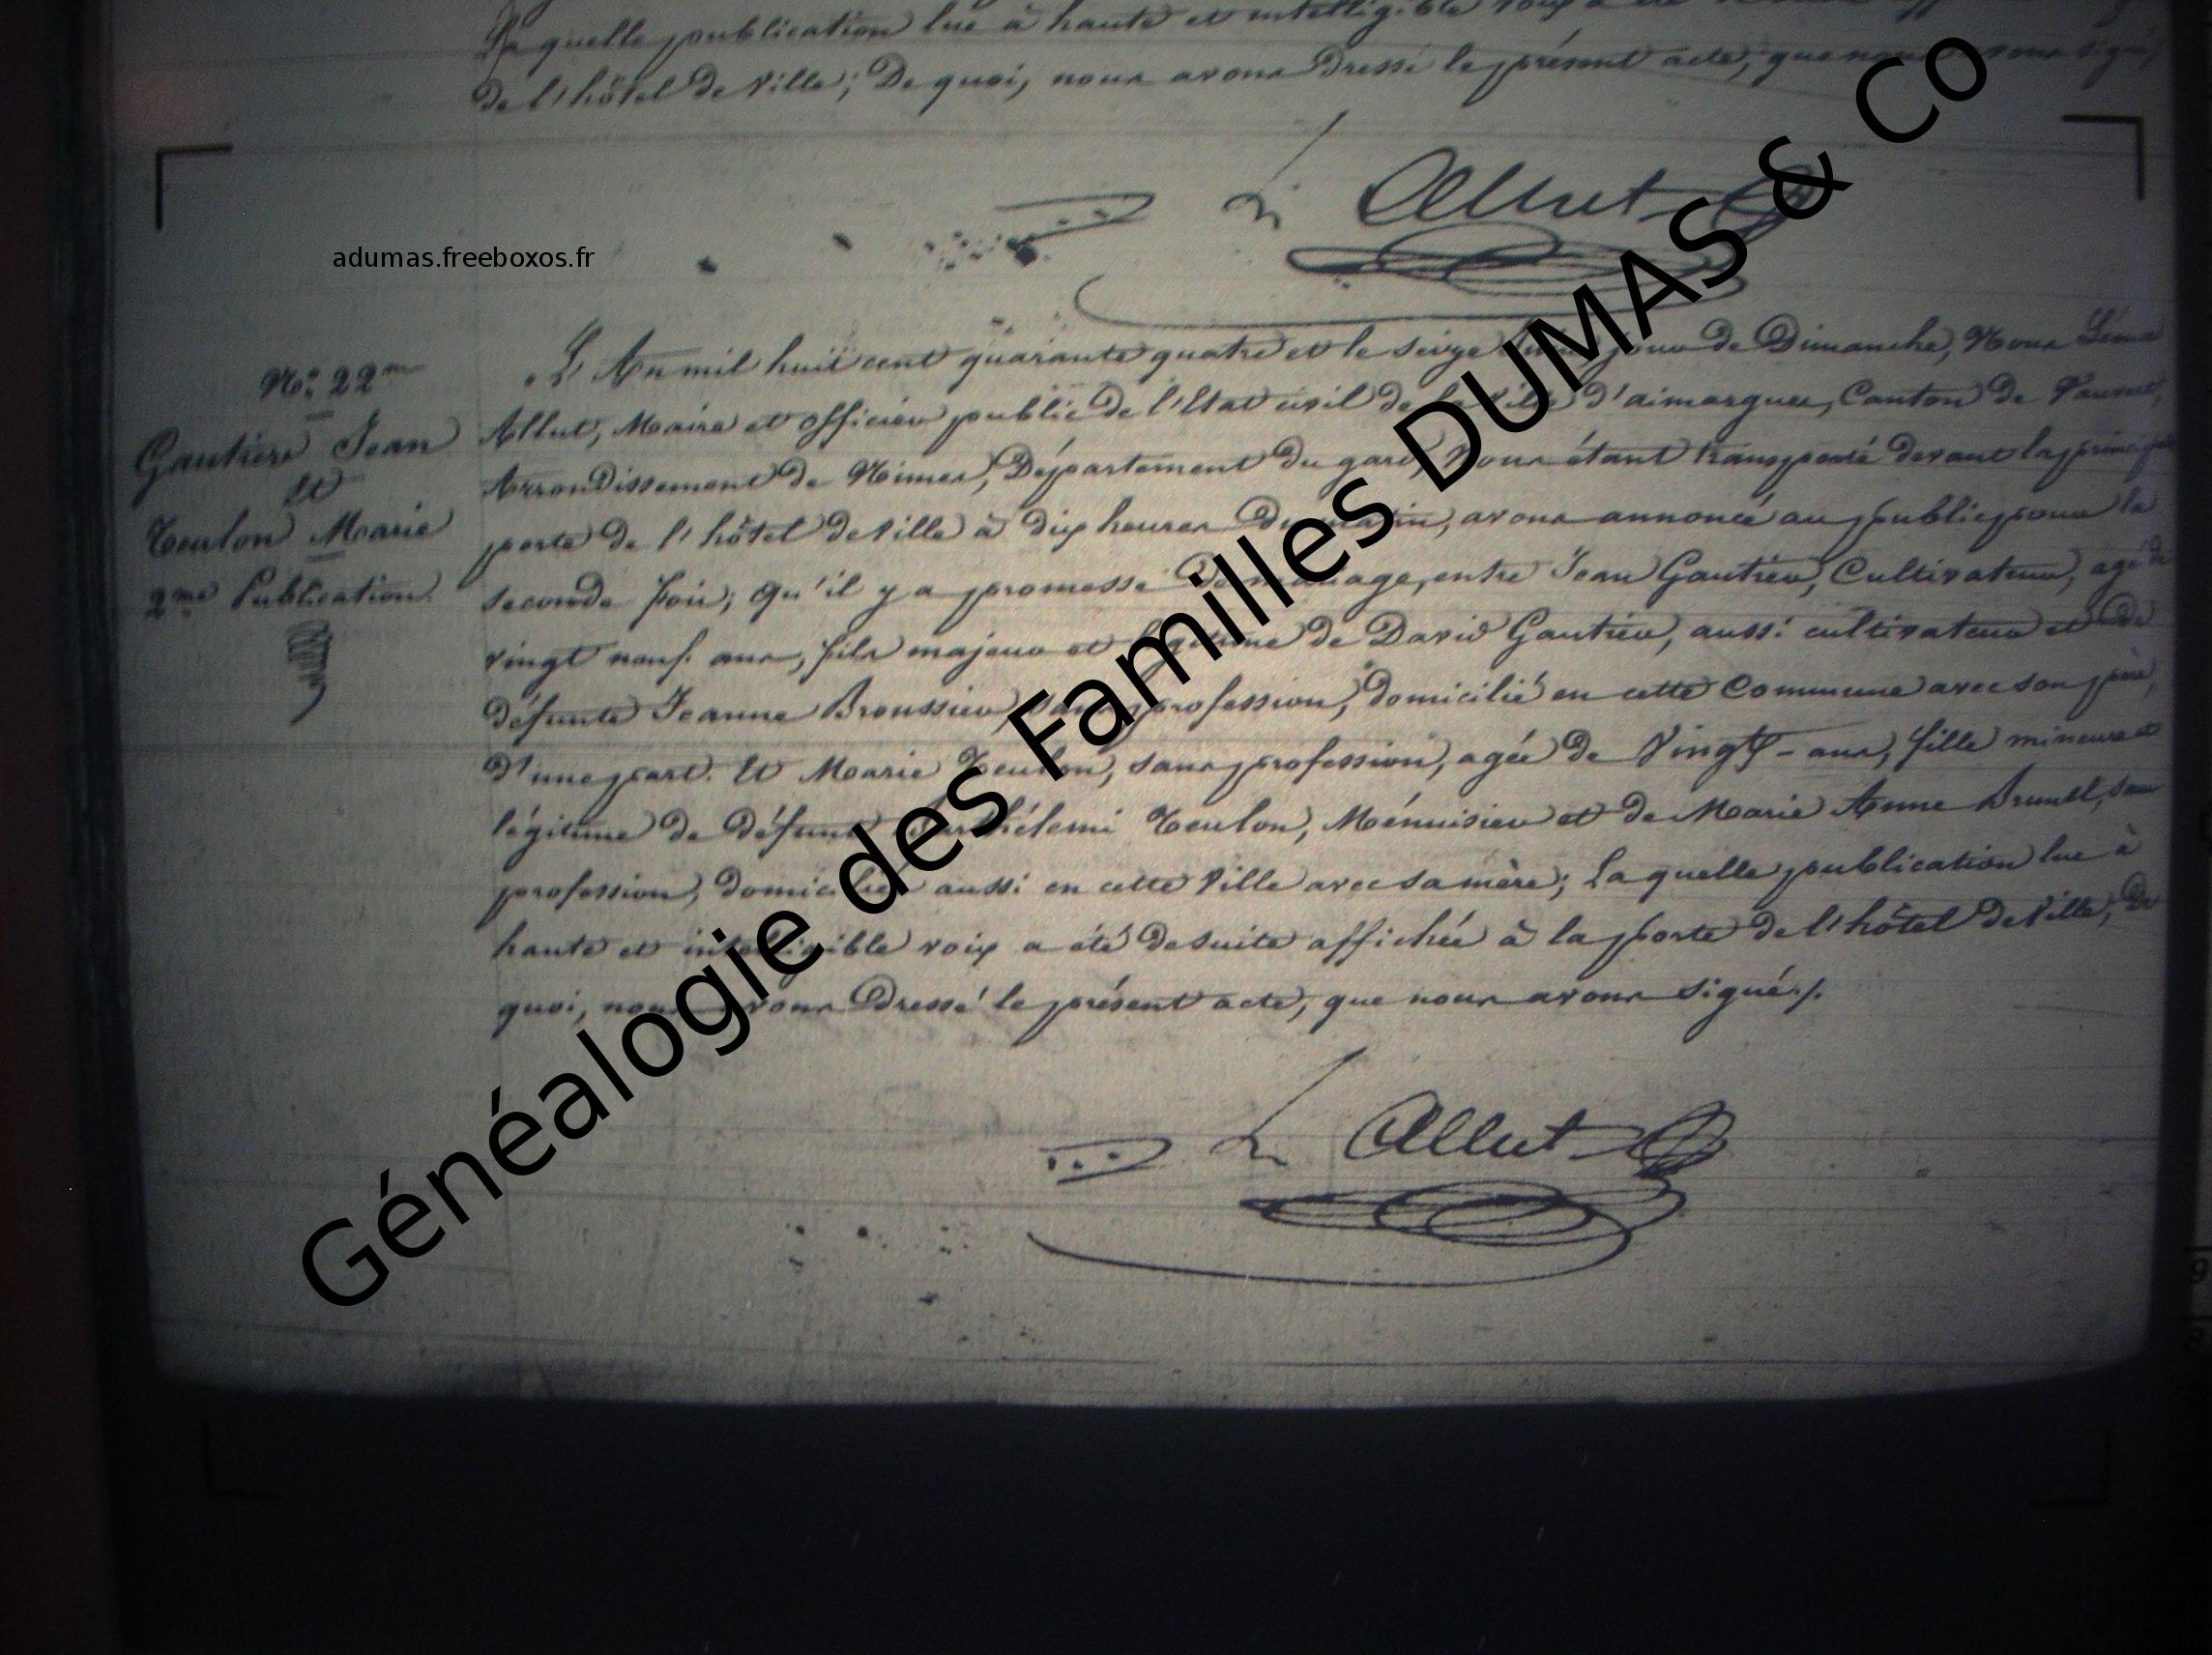 La quelle publication lue à haute et intelligible voix a été
de l'hôtel de Ville; De quoi, nous avons Dressé le présent acte, que nous
Allut
adumas.freeboxos.fr
Généalogie des Familles DUMAS & Co
N.º 22.me
Gautier Jean
Et
Teulon Marie
2.me Publication
L'An mil huit cent quarante quatre et le seize jour de Dimanche, Nous
Allut, Maire et officier public de l'Etat civil de la Ville d'aimargues, Canton de Vauvert,
Arrondissement de Nimes, Département du gard, Nous étant transporté devant la principale
porte de l'hôtel de Ville à dix heures du matin, avons annoncé au public pour la
seconde fois, Qu'il y a promesse de mariage, entre Jean Gautier, Cultivateur, agé de
vingt neuf ans, fils majeur et légitime de David Gautier, aussi cultivateur et De
défunte Jeanne Broussier, sans profession, domicilié en cette Commune avec son père,
d'une part. Et Marie Teulon, sans profession, agée de Vingt-ans, fille mineure et
légitime de défunt Barthélemi Teulon, Ménuisier et de Marie Anne Brunel, sans
profession, domiciliée aussi en cette Ville avec sa mère; La quelle publication lue à
haute et intelligible voix a été de suite affichée à la porte de l'hôtel de Ville; De
quoi, nous avons Dressé le présent acte, que nous avons signé./.
Allut